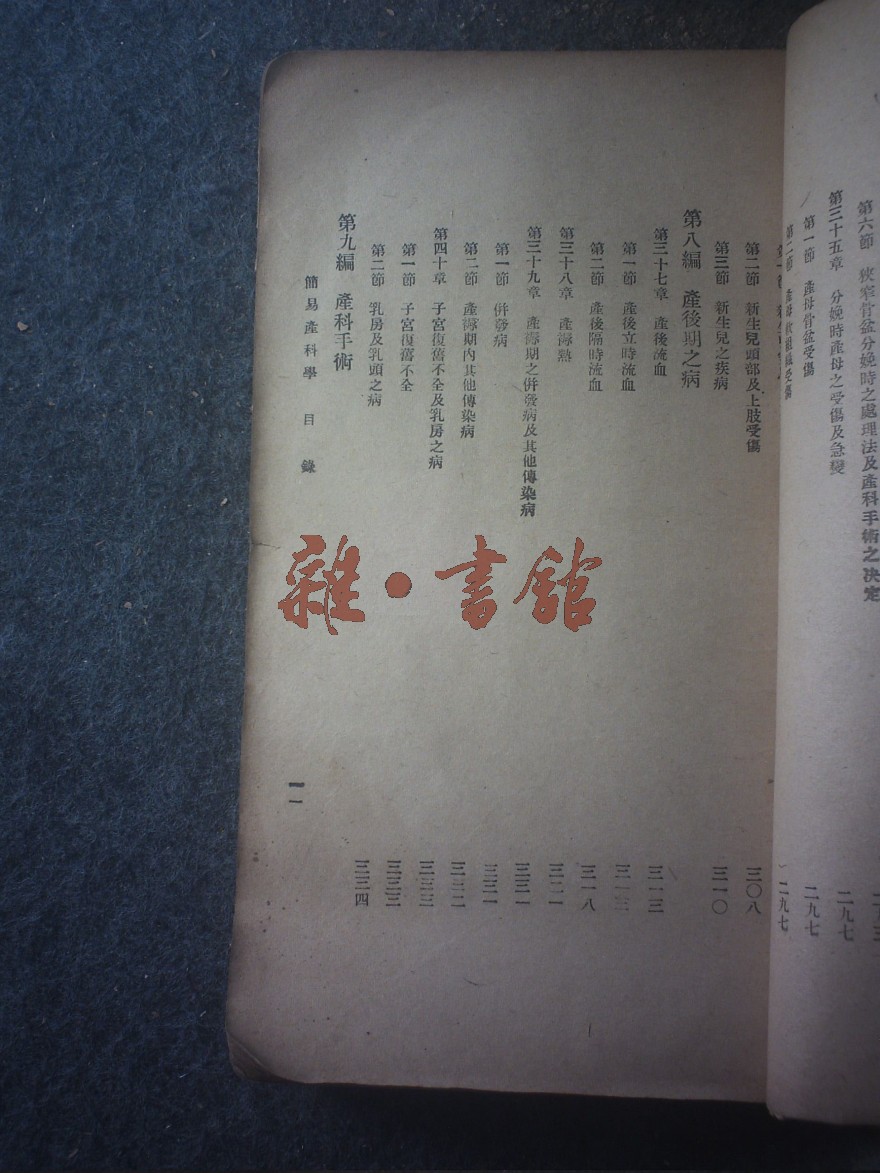 第六節 狹窄骨盆分娩時之處理法及產科手術之決定
第三十五章 分娩時產母之受傷及急變 二九七
第一節 產母骨盆受傷 二九七
第二節 產母軟組織受傷 二九七
第二節 新生兒頭部及上肢受傷 三〇八
第三節 新生兒之疾病 三一〇
第八編 產後期之病
第三十七章 產後流血 三一三
第一節 產後立時流血 三一三
第二節 產後隔時流血 三一八
第三十八章 產溽熱 三二一
第三十九章 產溽期之併發病及其他傳染病 三三一
第一節 併發病 三三一
第二節 產溽期內其他傳染病 三三二
第四十章 子宮復舊不全及乳房之病 三三三
第一節 子宮復舊不全 三三三
第二節 乳房及乳頭之病 三三四
第九編 產科手術
簡易產科學 目錄 一一
雜·書館